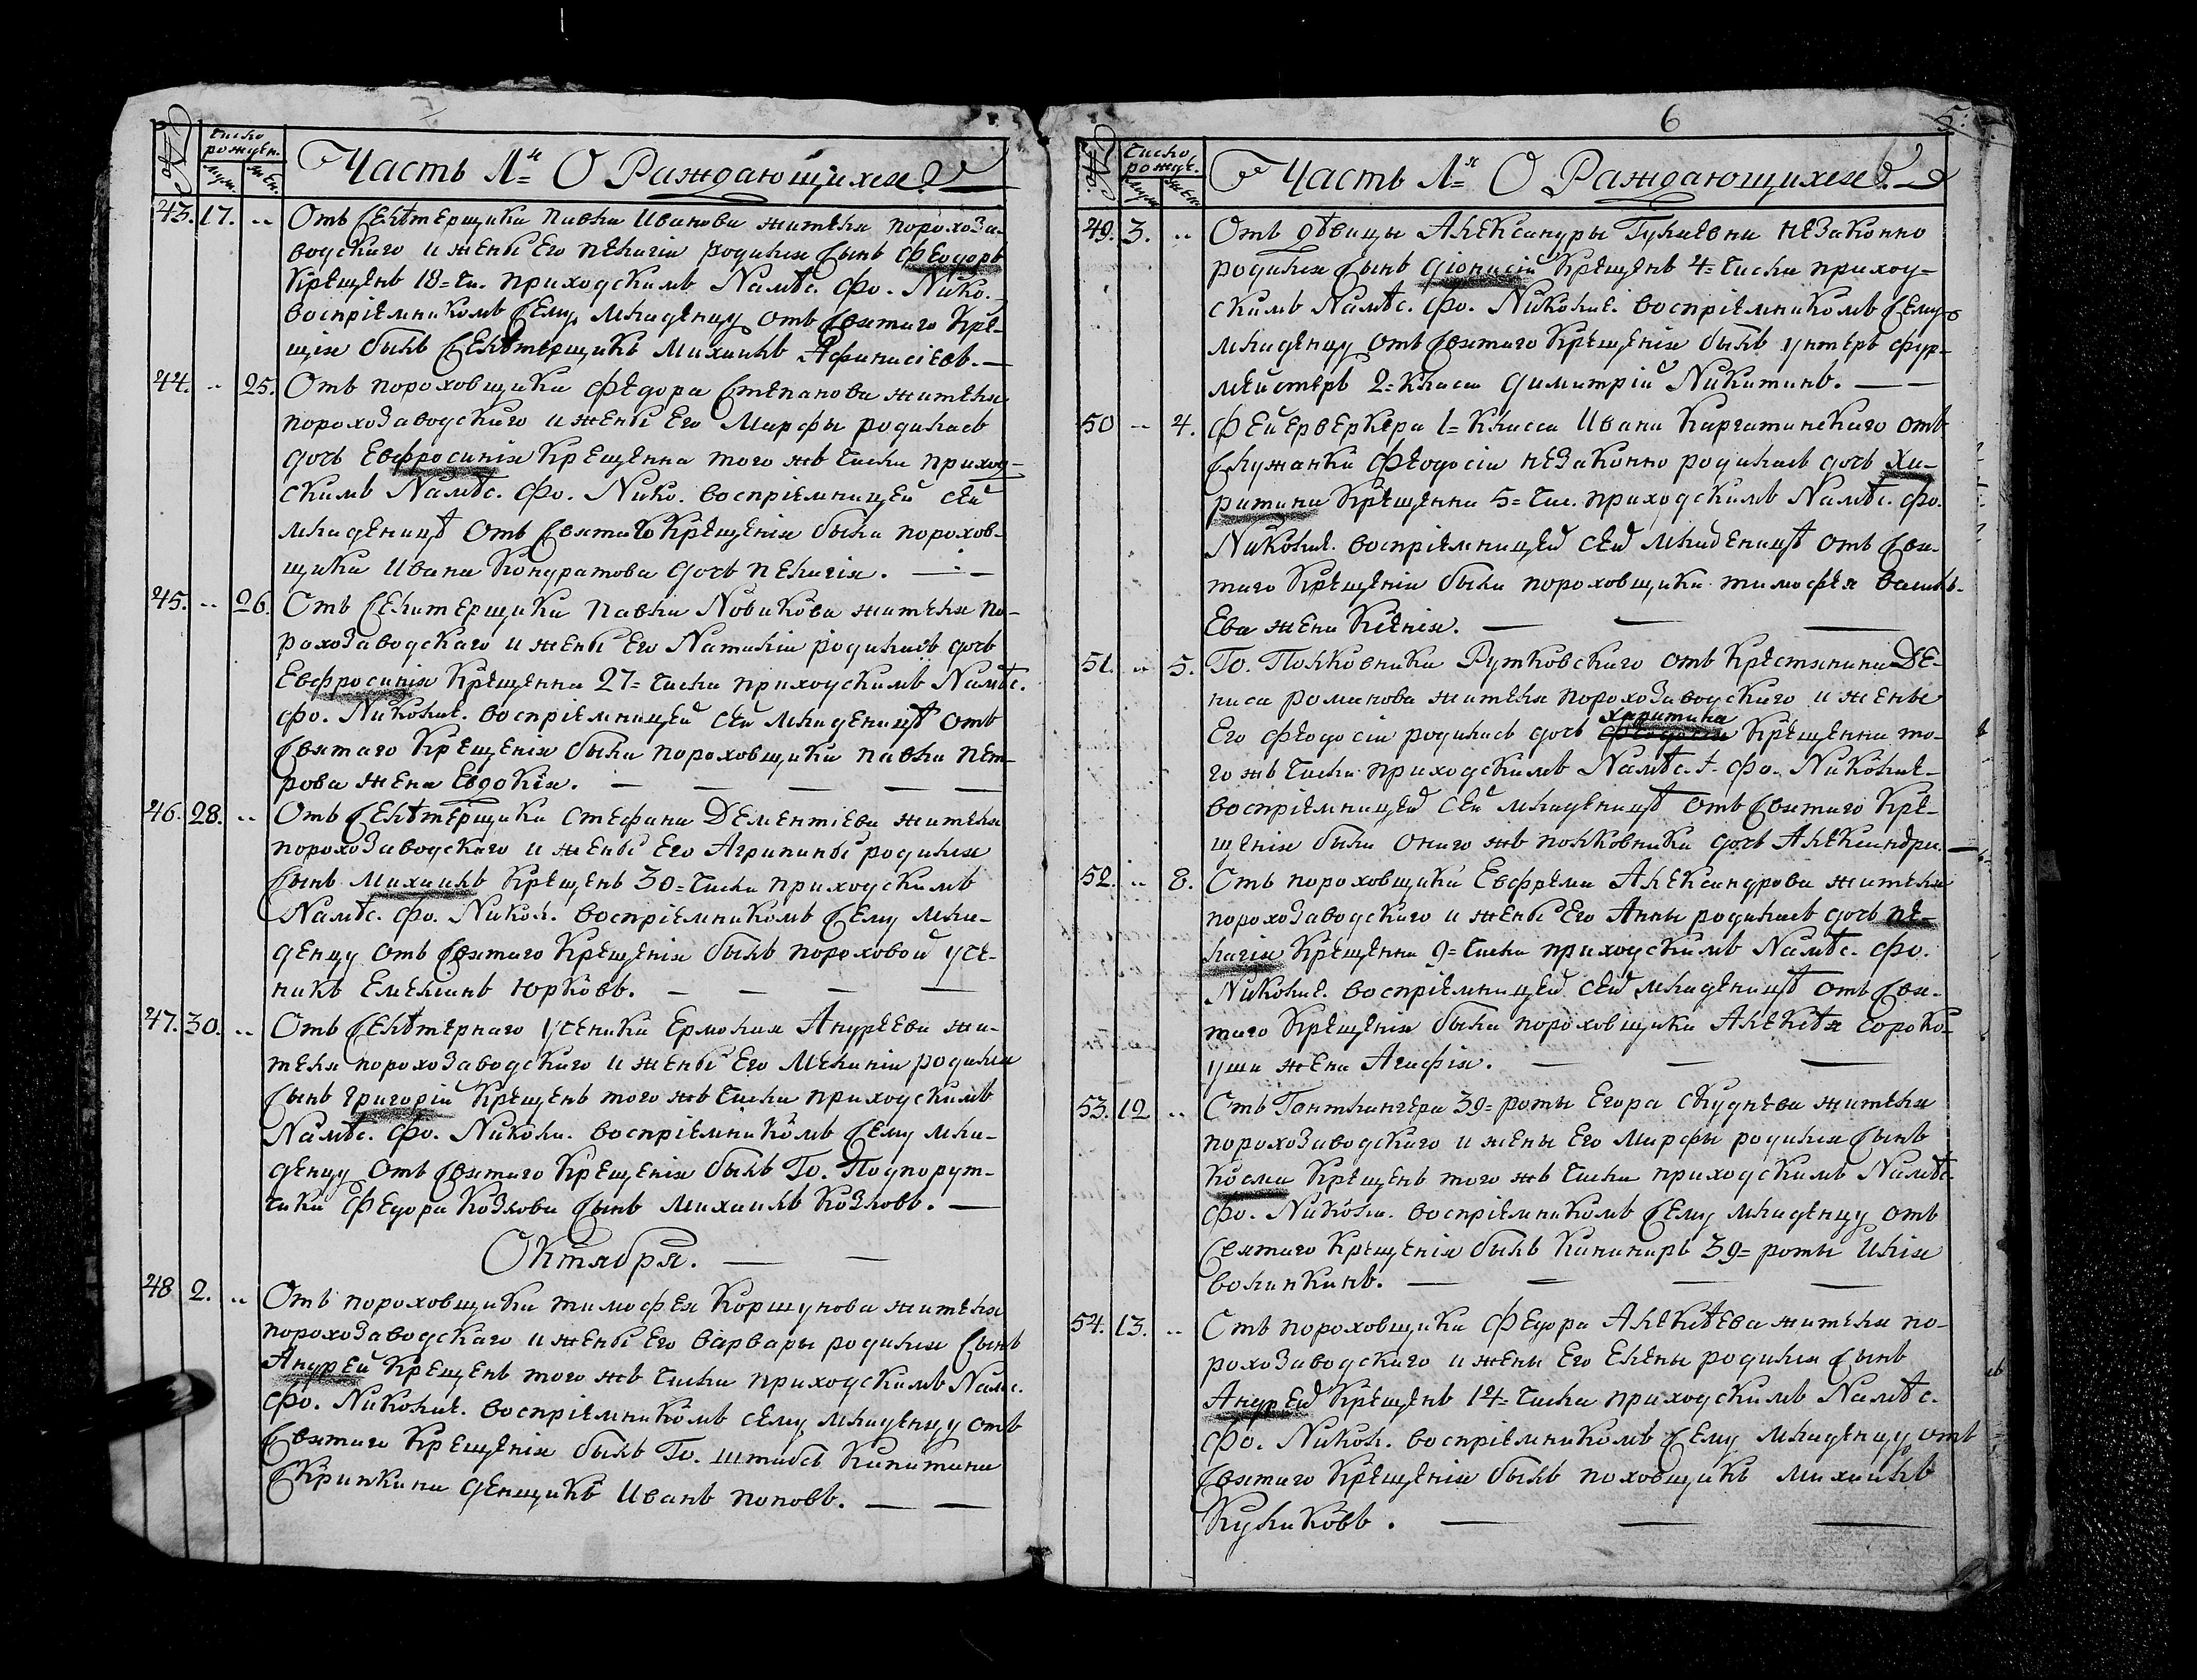 №
Число рожден.
муж. жен.
Часть 1я О Раждающихся
43. 17. „ Отъ Селѣтерщика Павла Иванова жителя порохоза-
водскаго и жены Его Пелагіи родился Сынъ Феодоръ
Крещенъ 18= чи. приходскимъ Намѣс. Фо. Нико.
воспріемникомъ Сему младенцу отъ Святаго Кре-
щія былъ Селѣтерщикъ Михаилъ Афанасіевъ.
44. „ 25. Отъ пороховщика Федора Степанова жителя
порохозаводскаго и жены Его Марфы родилась
дочь Евфросинія Крещенна того жъ числа приход-
скимъ Намѣс. Фо. Нико. воспріемницей сей
младеницѣ отъ Святаго Крещенія была порохов-
щика Ивана Кондратова дочь Пелагія.
45. „ 26. Отъ Селитерщика Павла Новикова жителя по-
рохозаводскаго и жены Его Наталіи родилась дочь
Евфросинія Крещенна 27= числа приходскимъ Намѣс.
Фо. Николае. воспріемницей сей младеницѣ отъ
Святаго Крещенія была пороховщика Павла Пет-
рова жена Евдокія.
46. 28. „ Отъ Селѣтерщика Стефана Дементіева жителя
порохозаводскаго и жены Его Агрипины родился
Сынъ Михаилъ Крещенъ 30= числа приходскимъ
Намѣс. Фо. Никол. воспріемникомъ Сему мла-
денцу отъ Святаго Крещенія былъ пороховой уче-
никъ Емельянъ Юрковъ.
47. 30. „ Отъ Селѣтернаго Ученика Ермолая Андреева жи-
теля порохозаводскаго и жены Его Меланіи родился
Сынъ Григорій Крещенъ того жъ числа приходскимъ
Намѣс. Фо. Никола. воспріемникомъ Сему мла-
денцу отъ Святаго Крещенія былъ Го. Подпорут-
чика Федора Козлова Сынъ Михаилъ Козловъ.
Октября.
48 2. „ Отъ пороховщика Тимофея Коршунова жителя
порохозаводскаго и жены Его Варвары родился Сынъ
Андрей Крещенъ того жъ числа приходскимъ Намс.
Фо. Николае. воспріемникомъ сему младенцу отъ
Святаго Крещенія былъ Го. штабсъ Капитана
Скрипкина денщикъ Иванъ Поповъ.
6
5.
№
Число рожде.
муж. жен.
Часть 1я О Раждающихся
49. 3. „ Отъ дѣвицы Александры Гулаевна незаконно
родился Сынъ Діонисій Крещенъ 4= числа приход-
скимъ Намѣс. Фо. Николае. воспріемникомъ Сему
младенцу отъ Святаго Крещенія былъ унтеръ фур-
мейстеръ 2= класа Димитрій Никитинъ.
50 „ 4. Фейерверкера 1= Класса Ивана Каргатинскаго отъ
Служанки Феодосіи незаконно родилась дочь Ха-
ритина Крещенна 5= чис. приходскимъ Намѣс. Фо.
Николае. воспріемницей сей младеницѣ отъ Свя-
таго Крещенія была пороховщика Тимофея Василь-
Ева жена Ксенія.
51. „ 5. Го. Полковника Рутковскаго отъ Крестянина Де-
ниса Романова жителя порохозаводскаго и жены
Его Феодосіи родилась дочь Харитина Крещенна то-
го жъ числа приходскимъ Намѣс. Фо. Николае-
воспріемницей сей младеницѣ отъ Святаго Кре-
щенія была онаго жъ полковника дочь Александра.
52. „ 8. Отъ пороховщика Евфрема Александрова жителя
порохозаводскаго и жены Его Анны родилась дочь Пе-
лагія Крещенна 9= числа приходскимъ Намѣс. Фо.
Николае. воспріемницей сей младеницѣ отъ Свя-
таго Крещенія была пороховщика Алексѣя Сороко-
уша жена Агафія.
53. 12 „ Отъ Гантлангера 39= роты Егора Скуднева жителя
порохозаводскаго и жены Его Марфы родился Сынъ
Косма Крещенъ того жъ числа приходскимъ Намѣс.
Фо. Никола. воспріемникомъ Сему младенцу отъ
Святаго Крещенія былъ Кананиръ 39= роты Илія
Волинкинъ.
54. 13. „ Отъ пороховщика Федора Алексѣева жителя по-
рохозаводскаго и жены Его Елены родился Сынъ
Андрей Крещенъ 14= числа приходскимъ Намѣс.
Фо. Никол. воспріемникомъ Сему младенцу отъ
Святаго Крещенія былъ поховщикъ Михаилъ
Куликовъ.